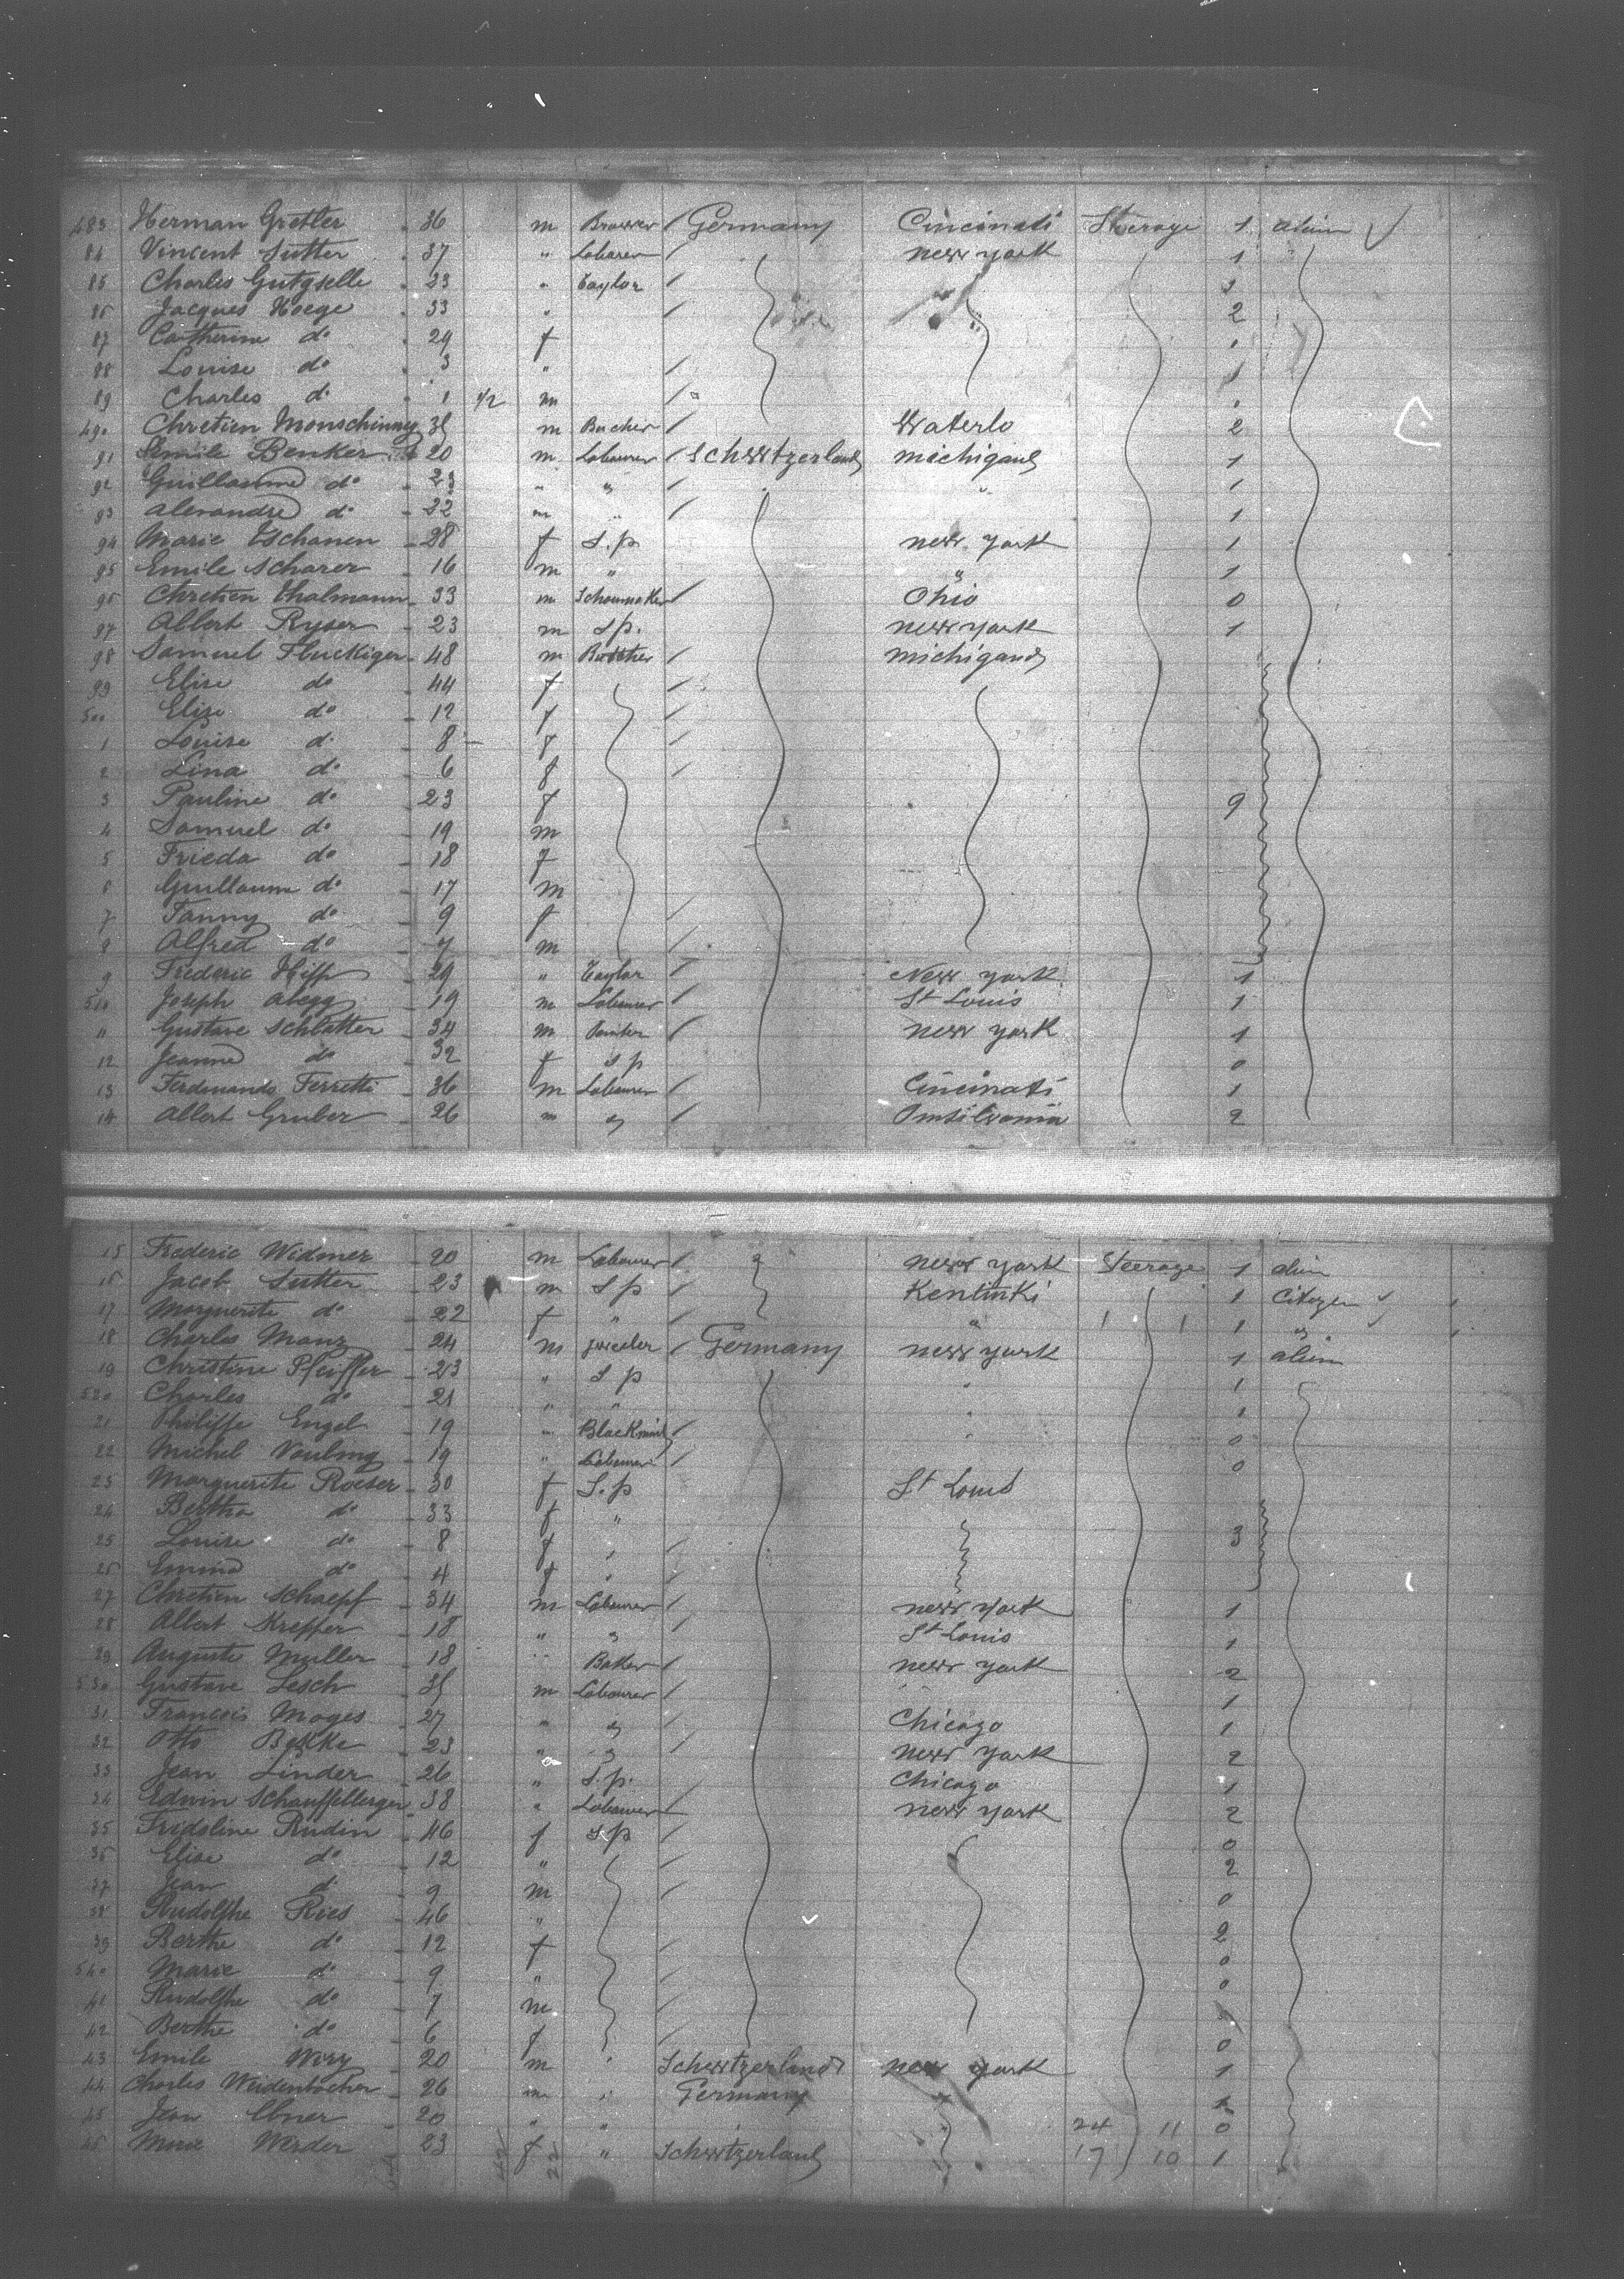 483 Herman Gretler 36 m Brower Germany Cincinati Steerage 1 alien
84 Vincent Sutter 37 " Labarer new york 1
85 Charles Gutgselle 23 " Taylor 1
86 Jacques Hoege 33 " 2
87 Catherine do 29 f
88 Louise do 3 "
89 Charles do 1 1/2 m
490 Chretien Monschinny 35 m Bucher Waterlo 2
91 Emile Benker 20 m Labourer Schwitzerland michigand 1
92 Guillaume do 23 " " 1
93 alexandre do 22 m " 1
94 Marie Tschanen 28 f S.p new york 1
95 Emile Scharer 16 m " " 1
96 Chretien Thalmann 33 m Schoumaker Ohio 0
97 Albert Ryser 23 m S p. new york 1
98 Samuel Fluckiger 48 m Butcher michigand
99 Elise do 44 f
500 Elise do 12 f
1 Louise do 8 f
2 Lina do 6 f
3 Pauline do 23 f 9
4 Samuel do 19 m
5 Frieda do 18 f
6 Guillaum do 17 m
7 Fanny do 9 f
8 Alfred do m
9 Frederic Hipp 29 " Taylor New york 1
510 Joseph abegg 19 m Labourer St Louis 1
11 Gustave Schlatter 34 m new york 1
12 Jeanne do 32 f S p 0
13 Ferdinando Ferretti 36 m Labourer Cincinati 1
14 Albert Gruber 26 m " Pensilvania 2
15 Frederic Widmer 20 m Labourer new york Steerage 1 alien
16 Jacob Sutter 23 m S p Kentuki 1 Citizen
17 Marguerite do 22 f " " 1 "
18 Charles Manz 24 m jweeler Germany new york 1 alien
19 Christine Pfeiffer 23 " S p 1
520 Charles do 21 " " 1
21 Philippe Engel 19 " Blacksmith 0
22 Michel 19 " Labourer 0
23 Marguerite Roeser 30 f S.p St Louis
24 Bertha do 33 f "
25 Louise do 8 f " 3
26 Emma do 4 f "
27 Chretien Schaepf 34 m Labourer new york 1
28 Albert Krepper 18 " " St Louis 1
29 Auguste Muller 18 " Baker new york 2
530 Gustave Lesch 35 m Labourer 1
31 Francois Moges 27 " " Chicago 1
32 Otto Bekke 23 " " new york 2
33 Jean Linder 26 " S.p. Chicago 1
34 Edwin Schauffelberger 38 " Labourer new york 2
35 Fridoline Rudin 46 f S p 0
36 Elise do 12 " 2
37 Jean d 9 m 0
38 Rudolphe Ries 46 " 2
39 Berthe do 12 f 0
540 Marie do 9 " 0
41 Rudolphe do 7 m
42 Berthe do 6 f 0
43 Emile Wiry 20 m " Schwitzerland new york 1
44 Charles Weidenbacher 26 m " Germany " 1
45 Jean Ebner 20 " " 24 11 0
46 Werder 23 f " Schwitzerland 17 10 1